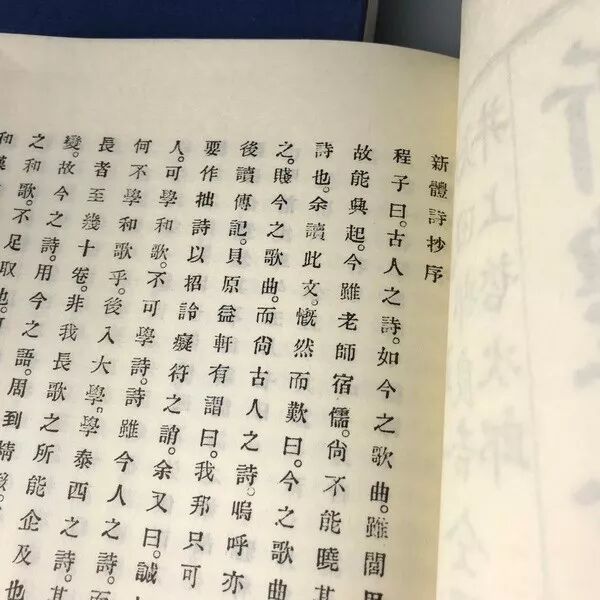 新體詩抄序
程子曰。古人之詩。如今之歌曲。雖閭
故能興起。今雖老師宿儒。尙不能曉其
詩也。余讀此文。慨然而歎曰。今之歌曲
之。賤今之歌曲。而尙古人之詩。嗚呼亦
後讀傳記。貝原益軒有謂曰。我邦只可
要作拙詩以招詅癡符之誚。余又曰。誠
人。可學和歌。不可學詩。詩雖今人之詩。而
何不學和歌乎。後入大學。學泰西之詩。其
長者至幾十卷。非我長歌之所能企及也
變。故今之詩。用今之語。周到精
之和歌。不足取也。
和漢